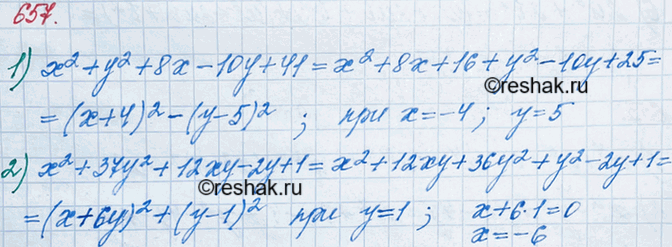 657.
1) x² + y² + 8x - 10y + 41 = x² + 8x + 16 + y² - 10y + 25 =
©reshak.ru
= (x+4)² - (y-5)² ; при x = -4 ; y = 5
2) x² + 37y² + 12xy - 2y + 1 = x² + 12xy + 36y² + y² - 2y + 1 =
©reshak.ru
= (x+6y)² + (y-1)² при y = 1 ; x + 6·1 = 0
x = -6